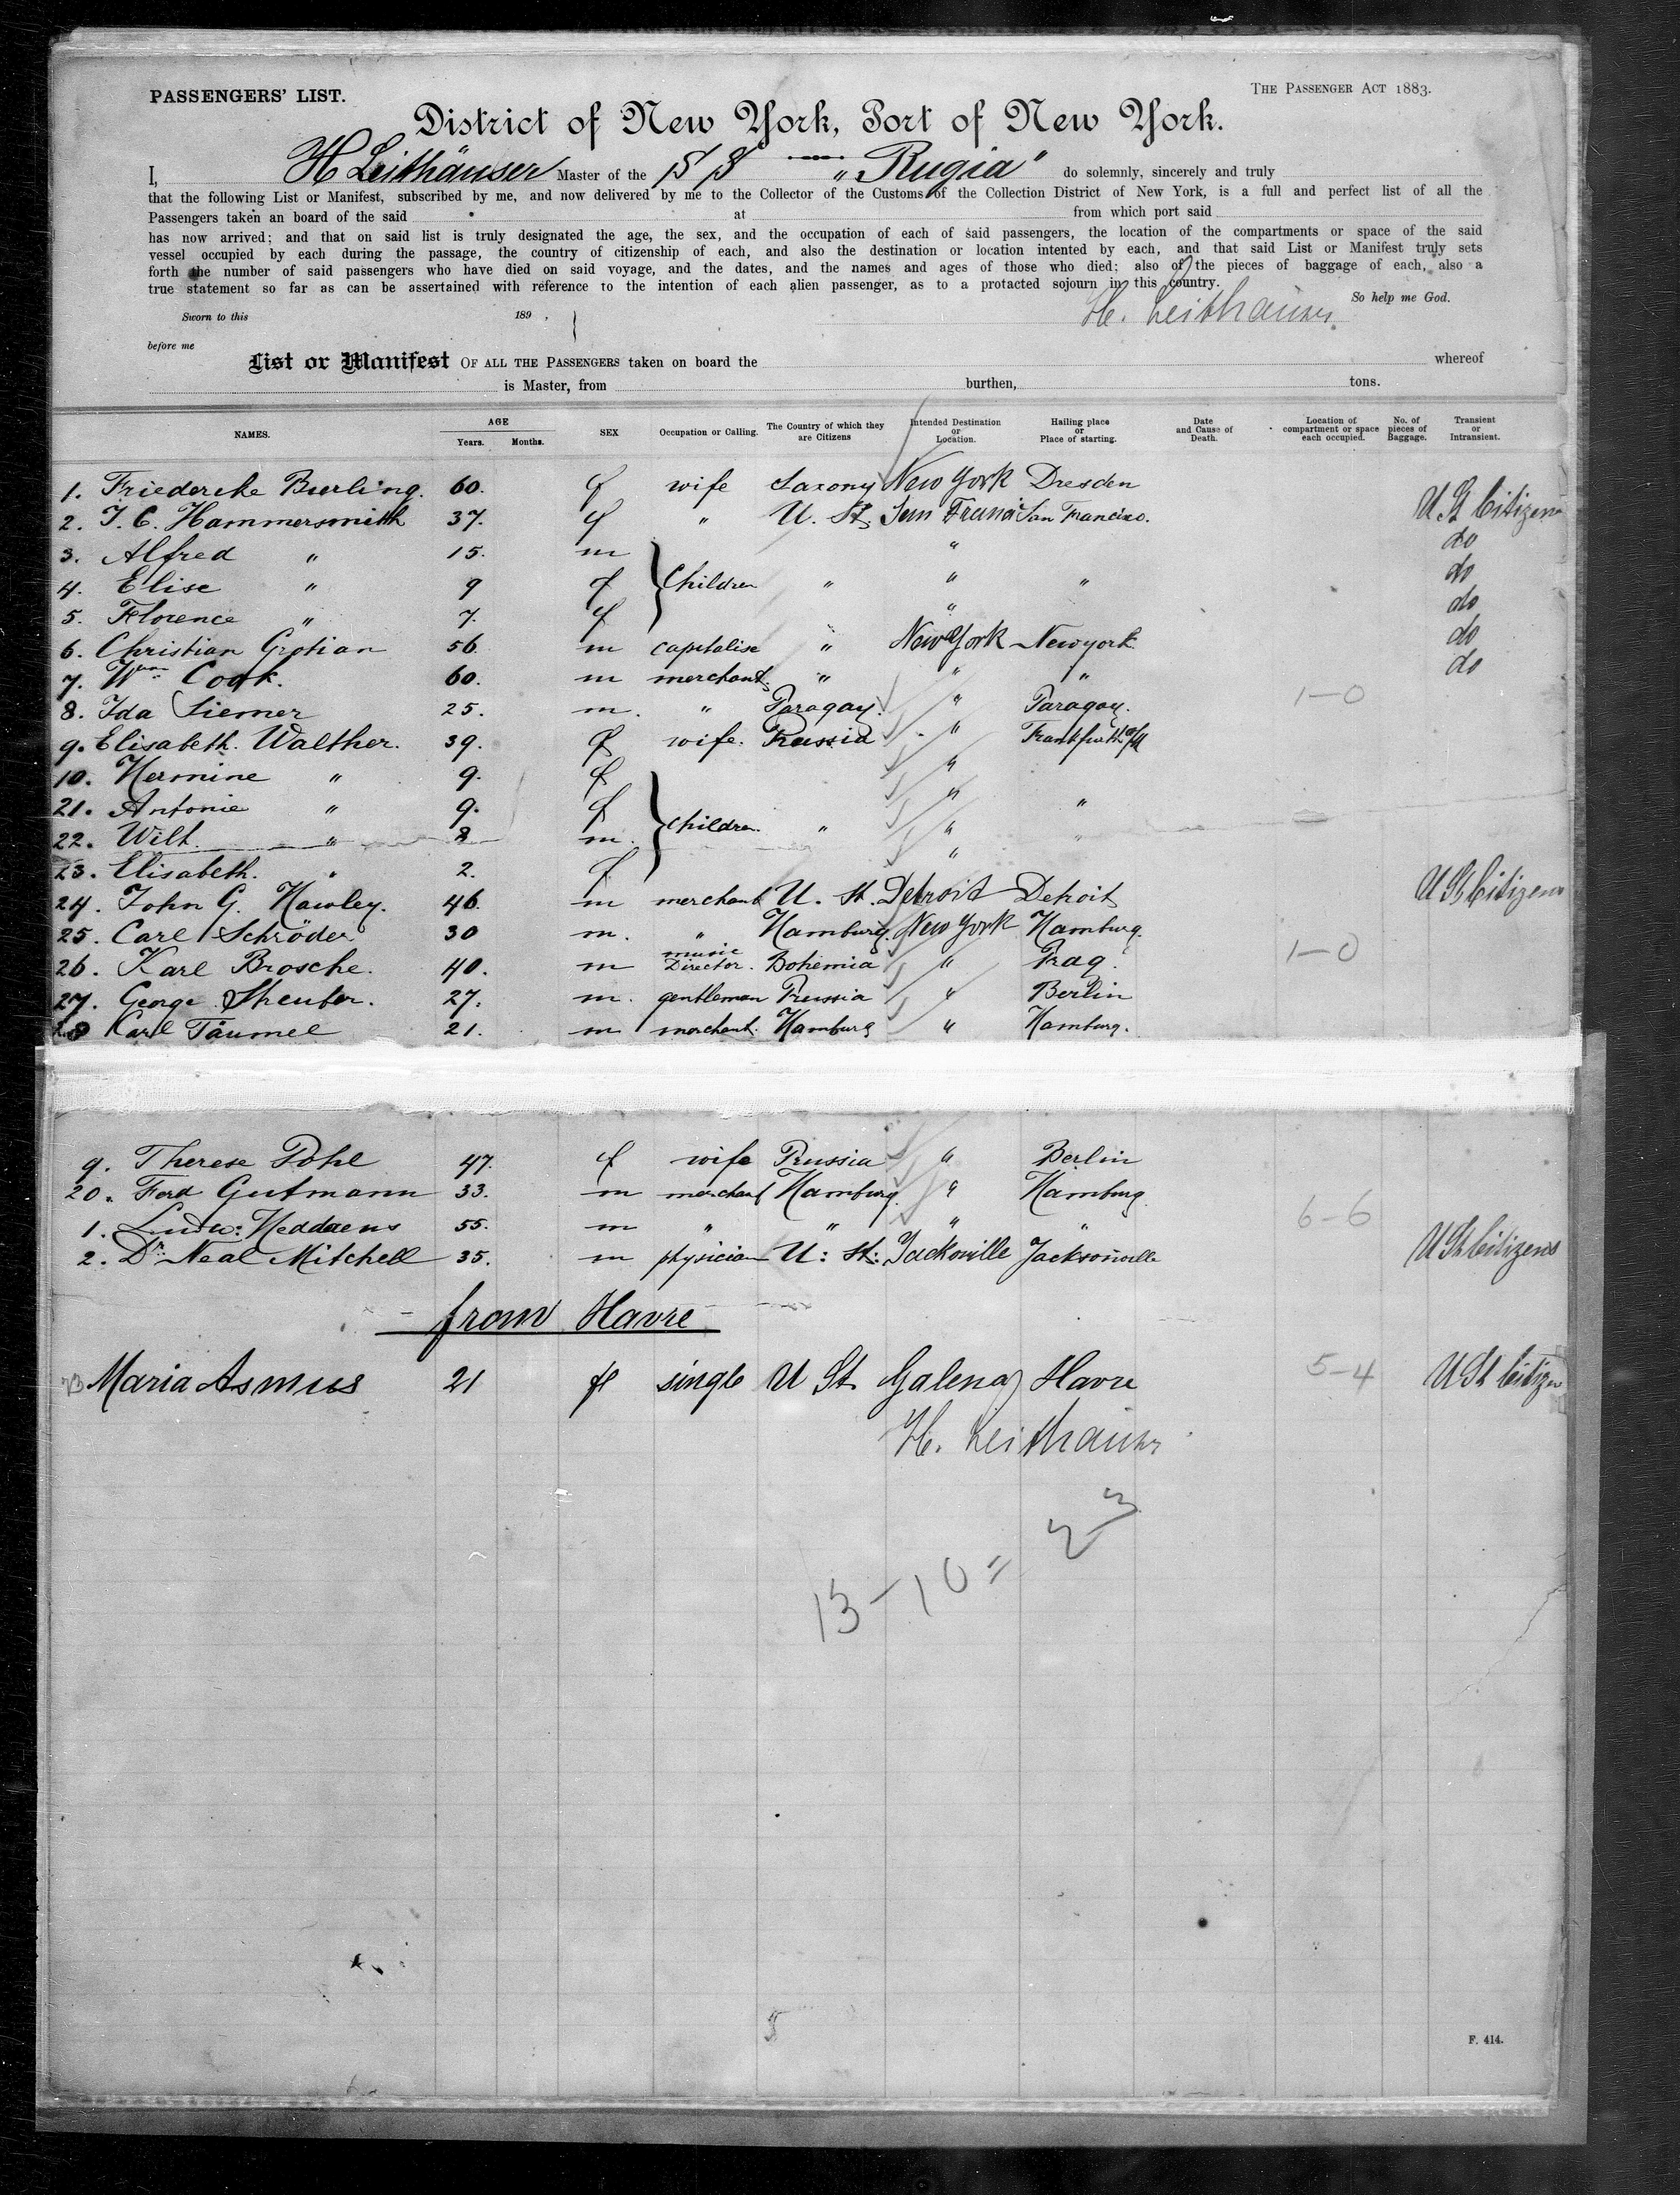 PASSENGERS' LIST.
THE PASSENGER ACT 1883.
District of New York, Port of New York.
I, H Leithäuser Master of the SS "Rugia" do solemnly, sincerely and truly
that the following List or Manifest, subscribed by me, and now delivered by me to the Collector of the Customs of the Collection District of New York, is a full and perfect list of all the
Passengers taken an board of the said at from which port said
has now arrived; and that on said list is truly designated the age, the sex, and the occupation of each of said passengers, the location of the compartments or space of the said
vessel occupied by each during the passage, the country of citizenship of each, and also the destination or location intented by each, and that said List or Manifest truly sets
forth the number of said passengers who have died on said voyage, and the dates, and the names and ages of those who died; also of the pieces of baggage of each, also a
true statement so far as can be assertained with reference to the intention of each alien passenger, as to a protacted sojourn in this country.
So help me God.
H. Leithäuser
Sworn to this 189 ,
before me
List or Manifest OF ALL THE PASSENGERS taken on board the whereof
is Master, from burthen, tons.
NAMES. AGE Years. Months. SEX Occupation or Calling. The Country of which they are Citizens Intended Destination or Location. Hailing place or Place of starting. Date and Cause of Death. Location of compartment or space each occupied. No. of pieces of Baggage. Transient or Intransient.
1. Friedericke Buerling. 60. f wife Saxony New York Dresden
2. J. C. Hammersmith 37. f " U. St. San Francis San Francisco. U St Citizens
3. Alfred " 15. m " do
4. Elise " 9 f Children " " " do
5. Florence " 7. f " do
6. Christian Grotian 56 m capitalise " New York New york do
7. Wm Cook. 60. m merchant " " " do
8. Ida Siemer 25. m. " Paragay. " Paragay. 1-0
9. Elisabeth. Walther. 39. f wife. Prussia " Frankfurth a/M
10. Hermine " 9. f "
21. Antonie " 9. f " "
22. Wilh. " 8 m. children. " " "
23. Elisabeth. " 2. f "
24. John G. Hawley. 46. m merchant U. St. Detroit Detroit U St Citizens
25. Carl Schröder 30 m. " Hamburg. New York Hamburg.
26. Karl Brosche. 40. m music Director. Bohemia " Prag. 1-0
27. George Streuber. 27. m. gentleman Prussia " Berlin
28 Karl Täumel 21. m merchant. Hamburg " Hamburg.
9. Therese Pohl 47. f wife Prussia " Berlin
20. Ferd Gutmann 33. m merchant Hamburg. " Hamburg
1. Ludw: Heddaens 55. m " " " " 6-6
2. Dr. Neal Mitchell 35. m physician U: St: Jacksonville Jacksonville U St Citizens
from Havre
23 Maria Asmus 21 f single U St Galena Havre 5-4 U St Citizen
H. Leithäuser
13-10 = 23
F. 414.